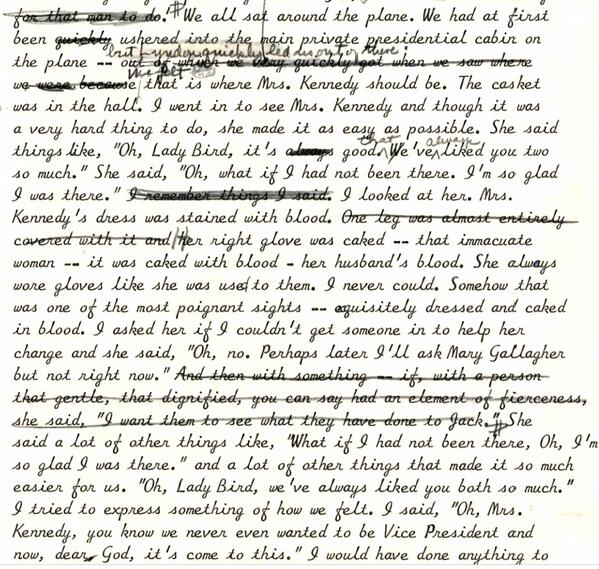 for that man to do. We all sat around the plane. We had at first
been quickly ushered into the main private presidential cabin on
but Lyndon quickly led us out of there;
the plane -- out of which we very quickly got when we saw where
we felt
we were because that is where Mrs. Kennedy should be. The casket
was in the hall. I went in to see Mrs. Kennedy and though it was
a very hard thing to do, she made it as easy as possible. She said
that always
things like, "Oh, Lady Bird, it's always good. We've liked you two
so much." She said, "Oh, what if I had not been there. I'm so glad
I was there." I remember things I said. I looked at her. Mrs.
Kennedy's dress was stained with blood. One leg was almost entirely
covered with it and Her right glove was caked -- that immacuate
woman -- it was caked with blood - her husband's blood. She always
wore gloves like she was used to them. I never could. Somehow that
was one of the most poignant sights -- exquisitely dressed and caked
in blood. I asked her if I couldn't get someone in to help her
change and she said, "Oh, no. Perhaps later I'll ask Mary Gallagher
but not right now." And then with something -- if, with a person
that gentle, that dignified, you can say had an element of fierceness,
she said, "I want them to see what they have done to Jack." She
said a lot of other things like, "What if I had not been there, Oh, I'm
so glad I was there." and a lot of other things that made it so much
easier for us. "Oh, Lady Bird, we've always liked you both so much."
I tried to express something of how we felt. I said, "Oh, Mrs.
Kennedy, you know we never even wanted to be Vice President and
now, dear God, it's come to this." I would have done anything to